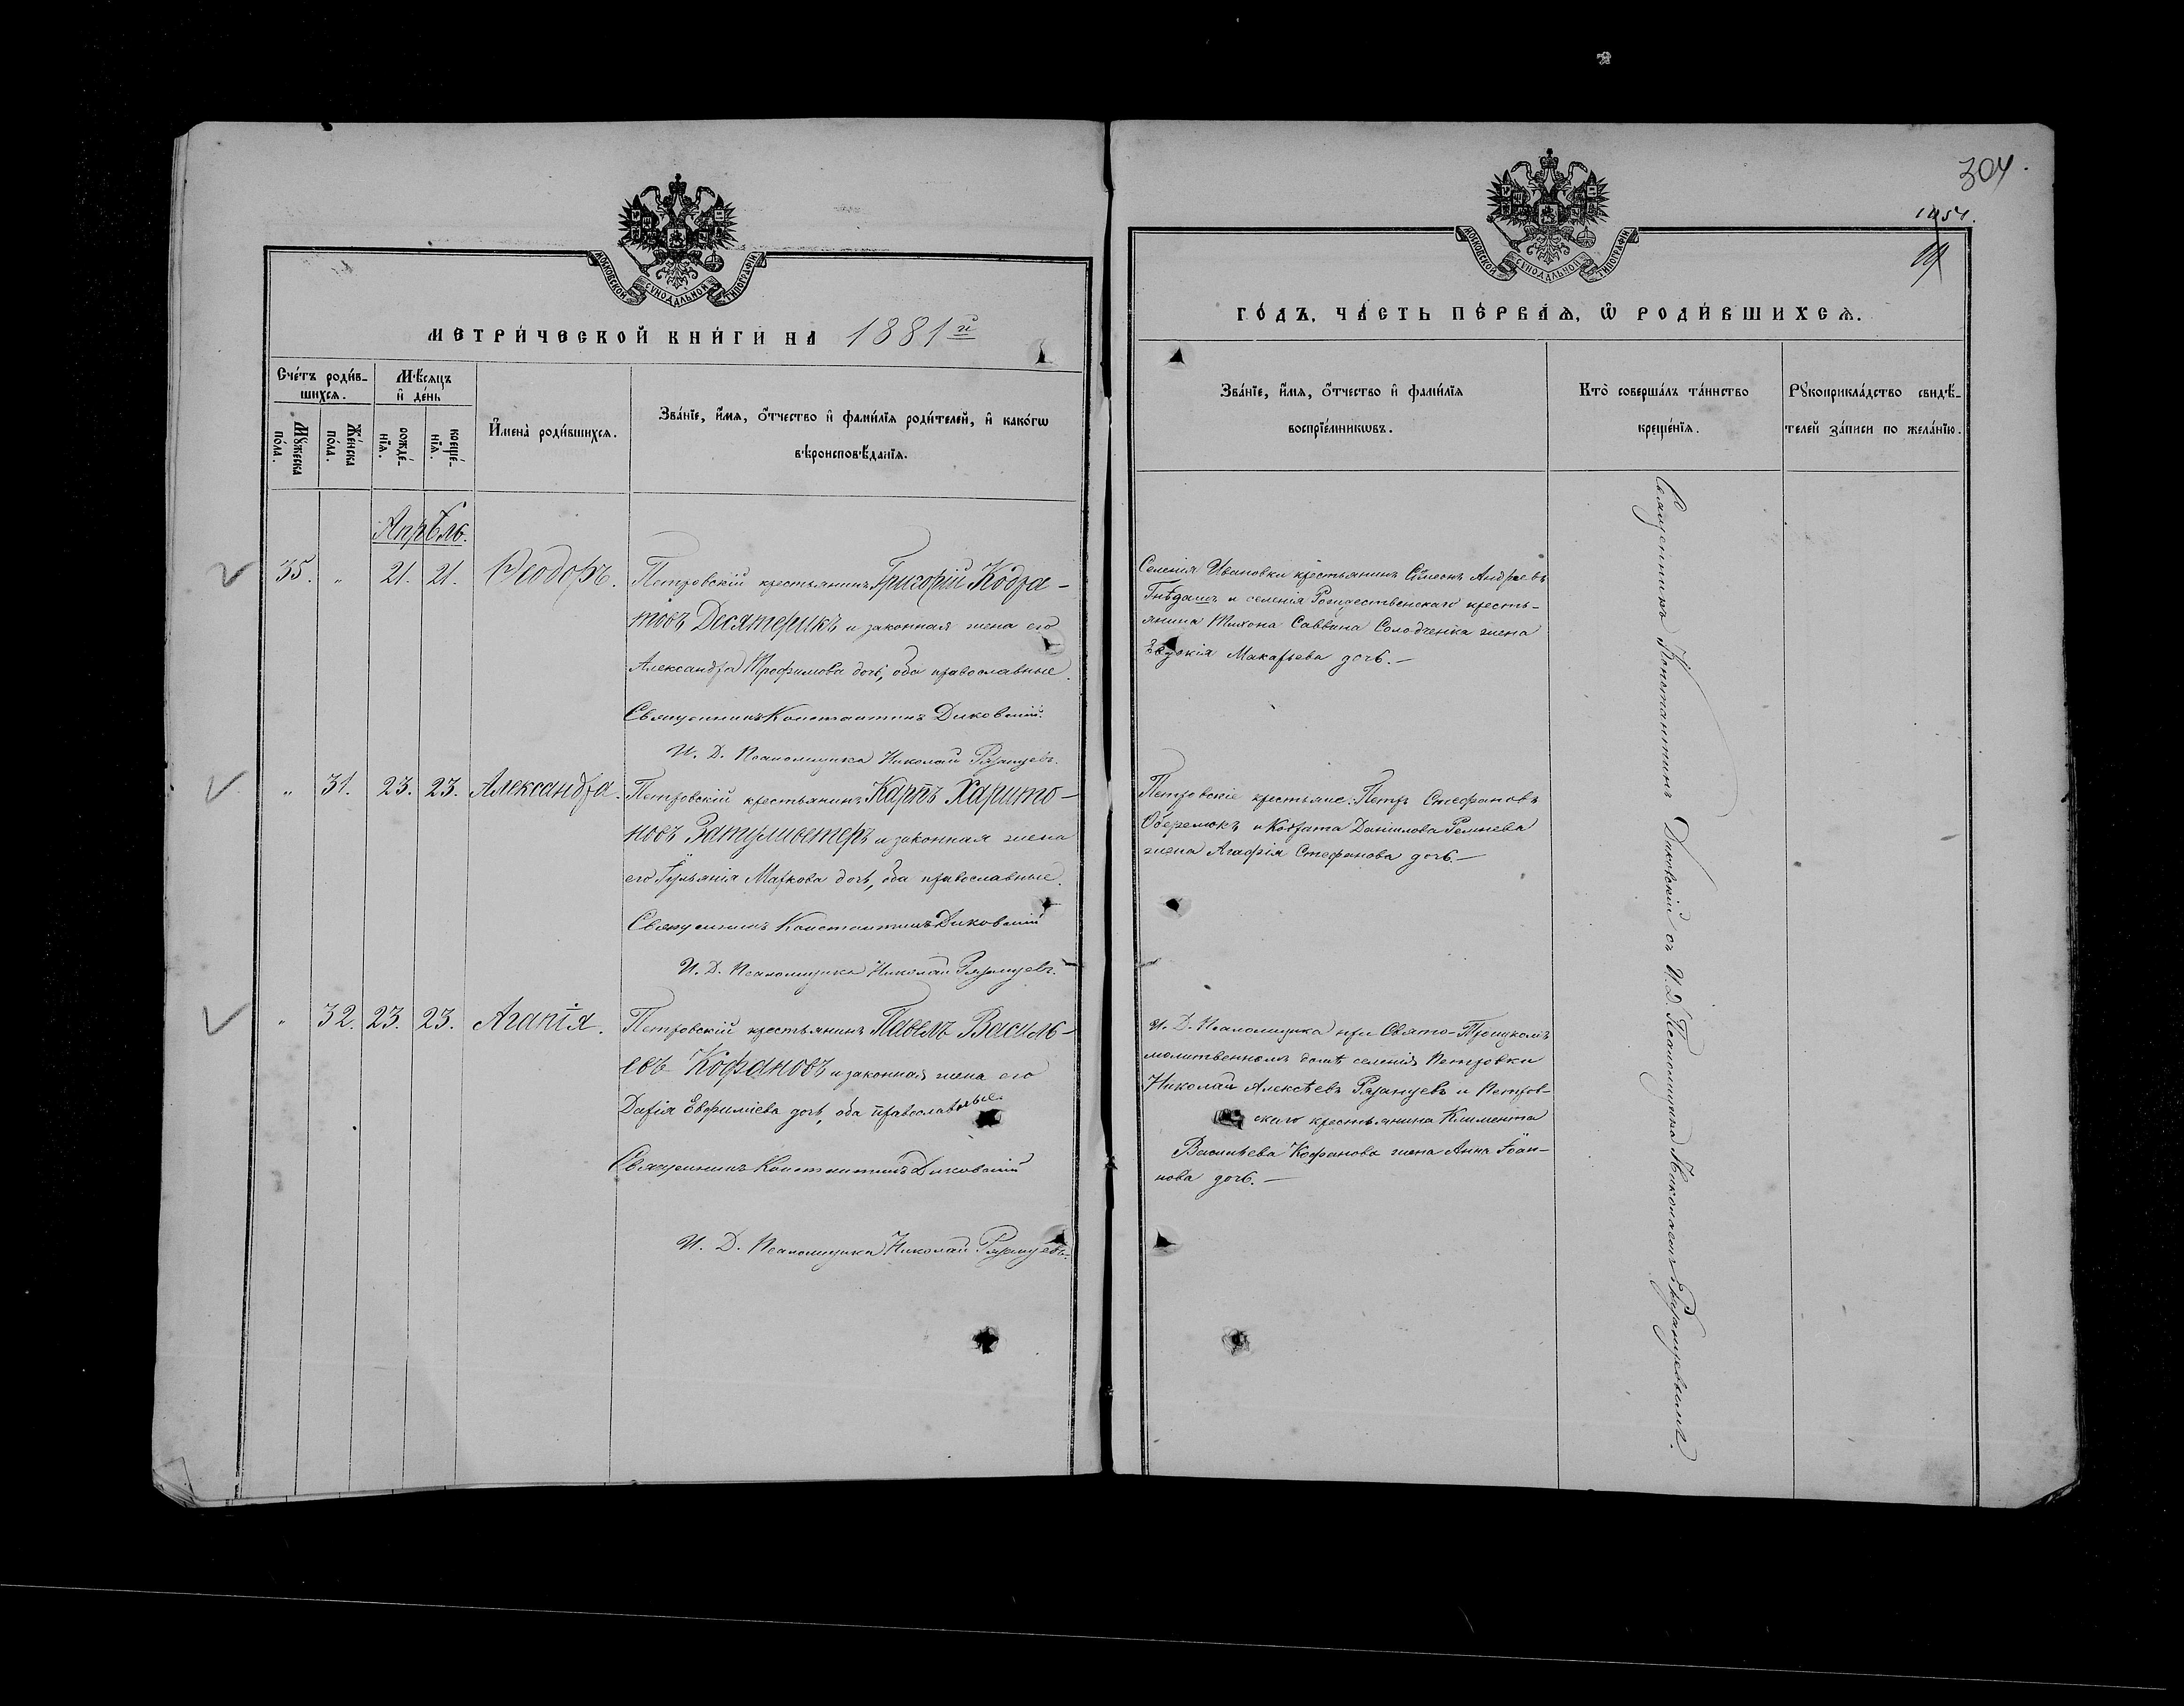 304.
1451.
99
МОСКОВСКОЙ СѴНОДАЛЬНОЙ ТИПОГРАФІИ
МЕТРИ́ЧЕСКОЙ КНИ́ГИ НА 1881й
Сче́тъ роди́в-
шихсѧ.
Мѣ́сѧцъ
и҆ де́нь
Мꙋ́жеска
по́ла.
Же́нска
по́ла.
рожде́-
нїѧ.
креще́-
нїѧ.
И҆мена̀ роди́вшихсѧ.
Зва́нїе, и҆́мѧ, ѻ҆́тчество и҆ фами́лїѧ роди́телей, и҆ како́гѡ
вѣроисповѣ́данїѧ.
Апрѣль.
35. " 21. 21. Ѳеодоръ.
Петровскій крестьянинъ Григорій Кодра-
товъ Десятерикъ и законная жена его
Александра Трофимова дочь, оба православные.
Священникъ Константинъ Диковскій.
И. Д. Псаломщика Николай Рязанцевъ.
" 31. 23. 23. Александра.
Петровскій крестьянинъ Карпъ Харито-
новъ Затуливетеръ и законная жена
его Іульянія Маркова дочь, оба православные.
Священникъ Константинъ Диковскій
И. Д. Псаломщика Николай Рязанцевъ.
" 32. 23. 23. Агапія.
Петровскій крестьянинъ Павелъ Василь-
евъ Кофановъ и законная жена его
Дарія Евфиміева дочь, оба православные.
Священникъ Константинъ Диковскій
И. Д. Псаломщика Николай Рязанцевъ.
МОСКОВСКОЙ СѴНОДАЛЬНОЙ ТИПОГРАФІИ
ГО́ДЪ, ЧА́СТЬ ПЕ́РВАѦ, Ѡ҆ РОДИ́ВШИХСѦ.
Зва́нїе, и҆́мѧ, ѻ҆́тчество и҆ фами́лїѧ
воспрїе́мникѡвъ.
Кто̀ соверша́лъ та́инство
креще́нїѧ.
Рꙋкоприкла́дство свидѣ́-
телей за́писи по жела́нїю.
Селенія Ивановки крестьянинъ Сѵмеонъ Андреевъ
Гнѣдашъ и селенія Рождественскаго кресть-
янина Тихона Саввина Солодченка жена
Евдокія Макарьева дочь.—
Петровскіе крестьяне: Петръ Стефановъ
Оберемокъ и Кодрата Даніилова Ремнева
жена Агафія Стефанова дочь.—
И. Д. Псаломщика при Свято-Троицкомъ
молитвенномъ домѣ селенія Петровки
Николай Алексѣевъ Рязанцевъ и Петров-
скаго крестьянина Климента
Васильева Кофанова жена Анна Іоан-
нова дочь.—
Священникъ Константинъ Диковскій съ И. Д. Псаломщика Николаемъ Рязанцевымъ.